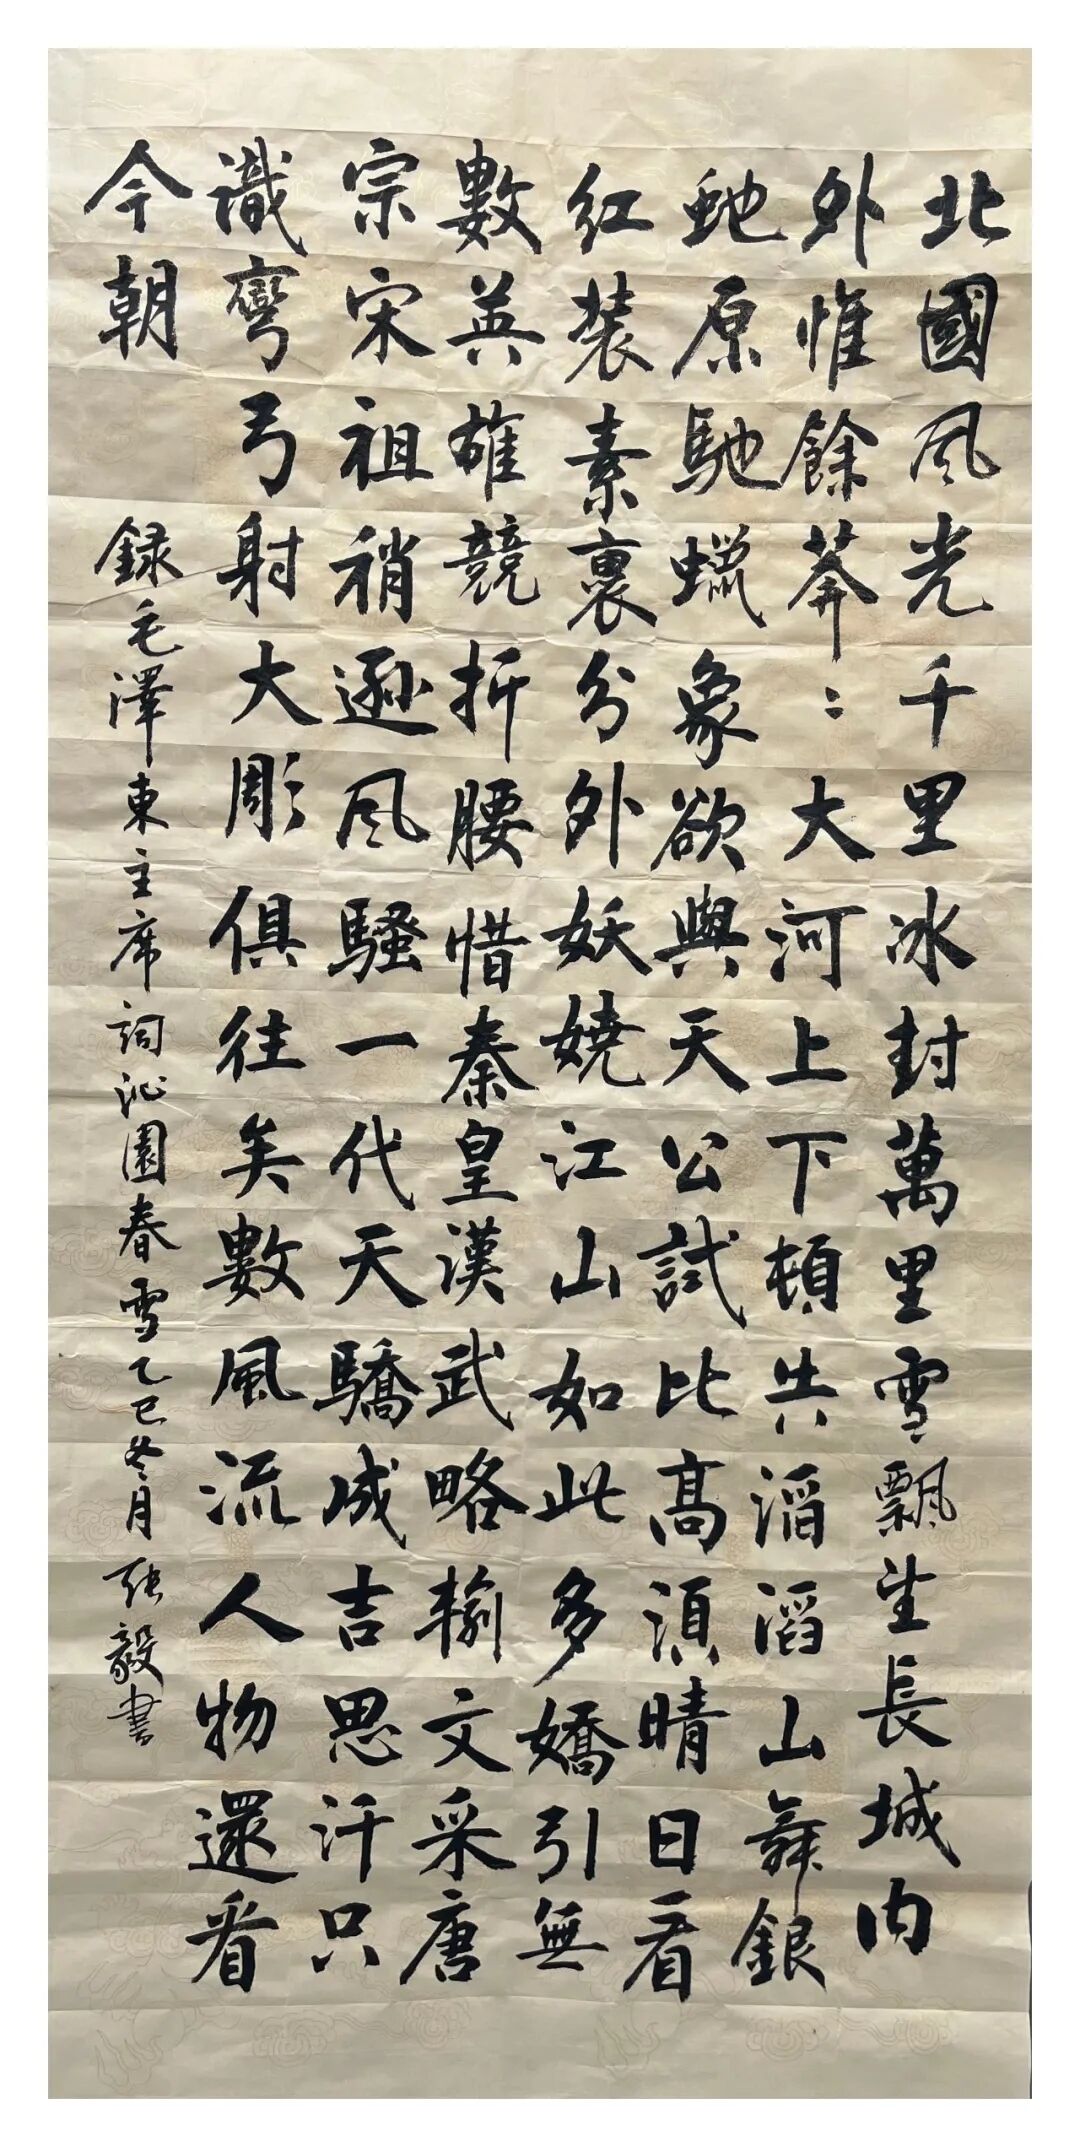 北國风光千里冰封萬里雪飄望長城内
外惟餘莽：大河上下頓失滔滔山舞銀
虵原馳蠟象欲與天公試比高須晴日看
紅裝素裹分外妖嬈江山如此多嬌引無
數英雄競折腰惜秦皇漢武略輸文采唐
宗宋祖稍遜风騷一代天驕成吉思汗只
識彎弓射大彫俱往矣數風流人物還看
今朝
録毛澤東主席詞沁園春雪乙巳冬月張毅書